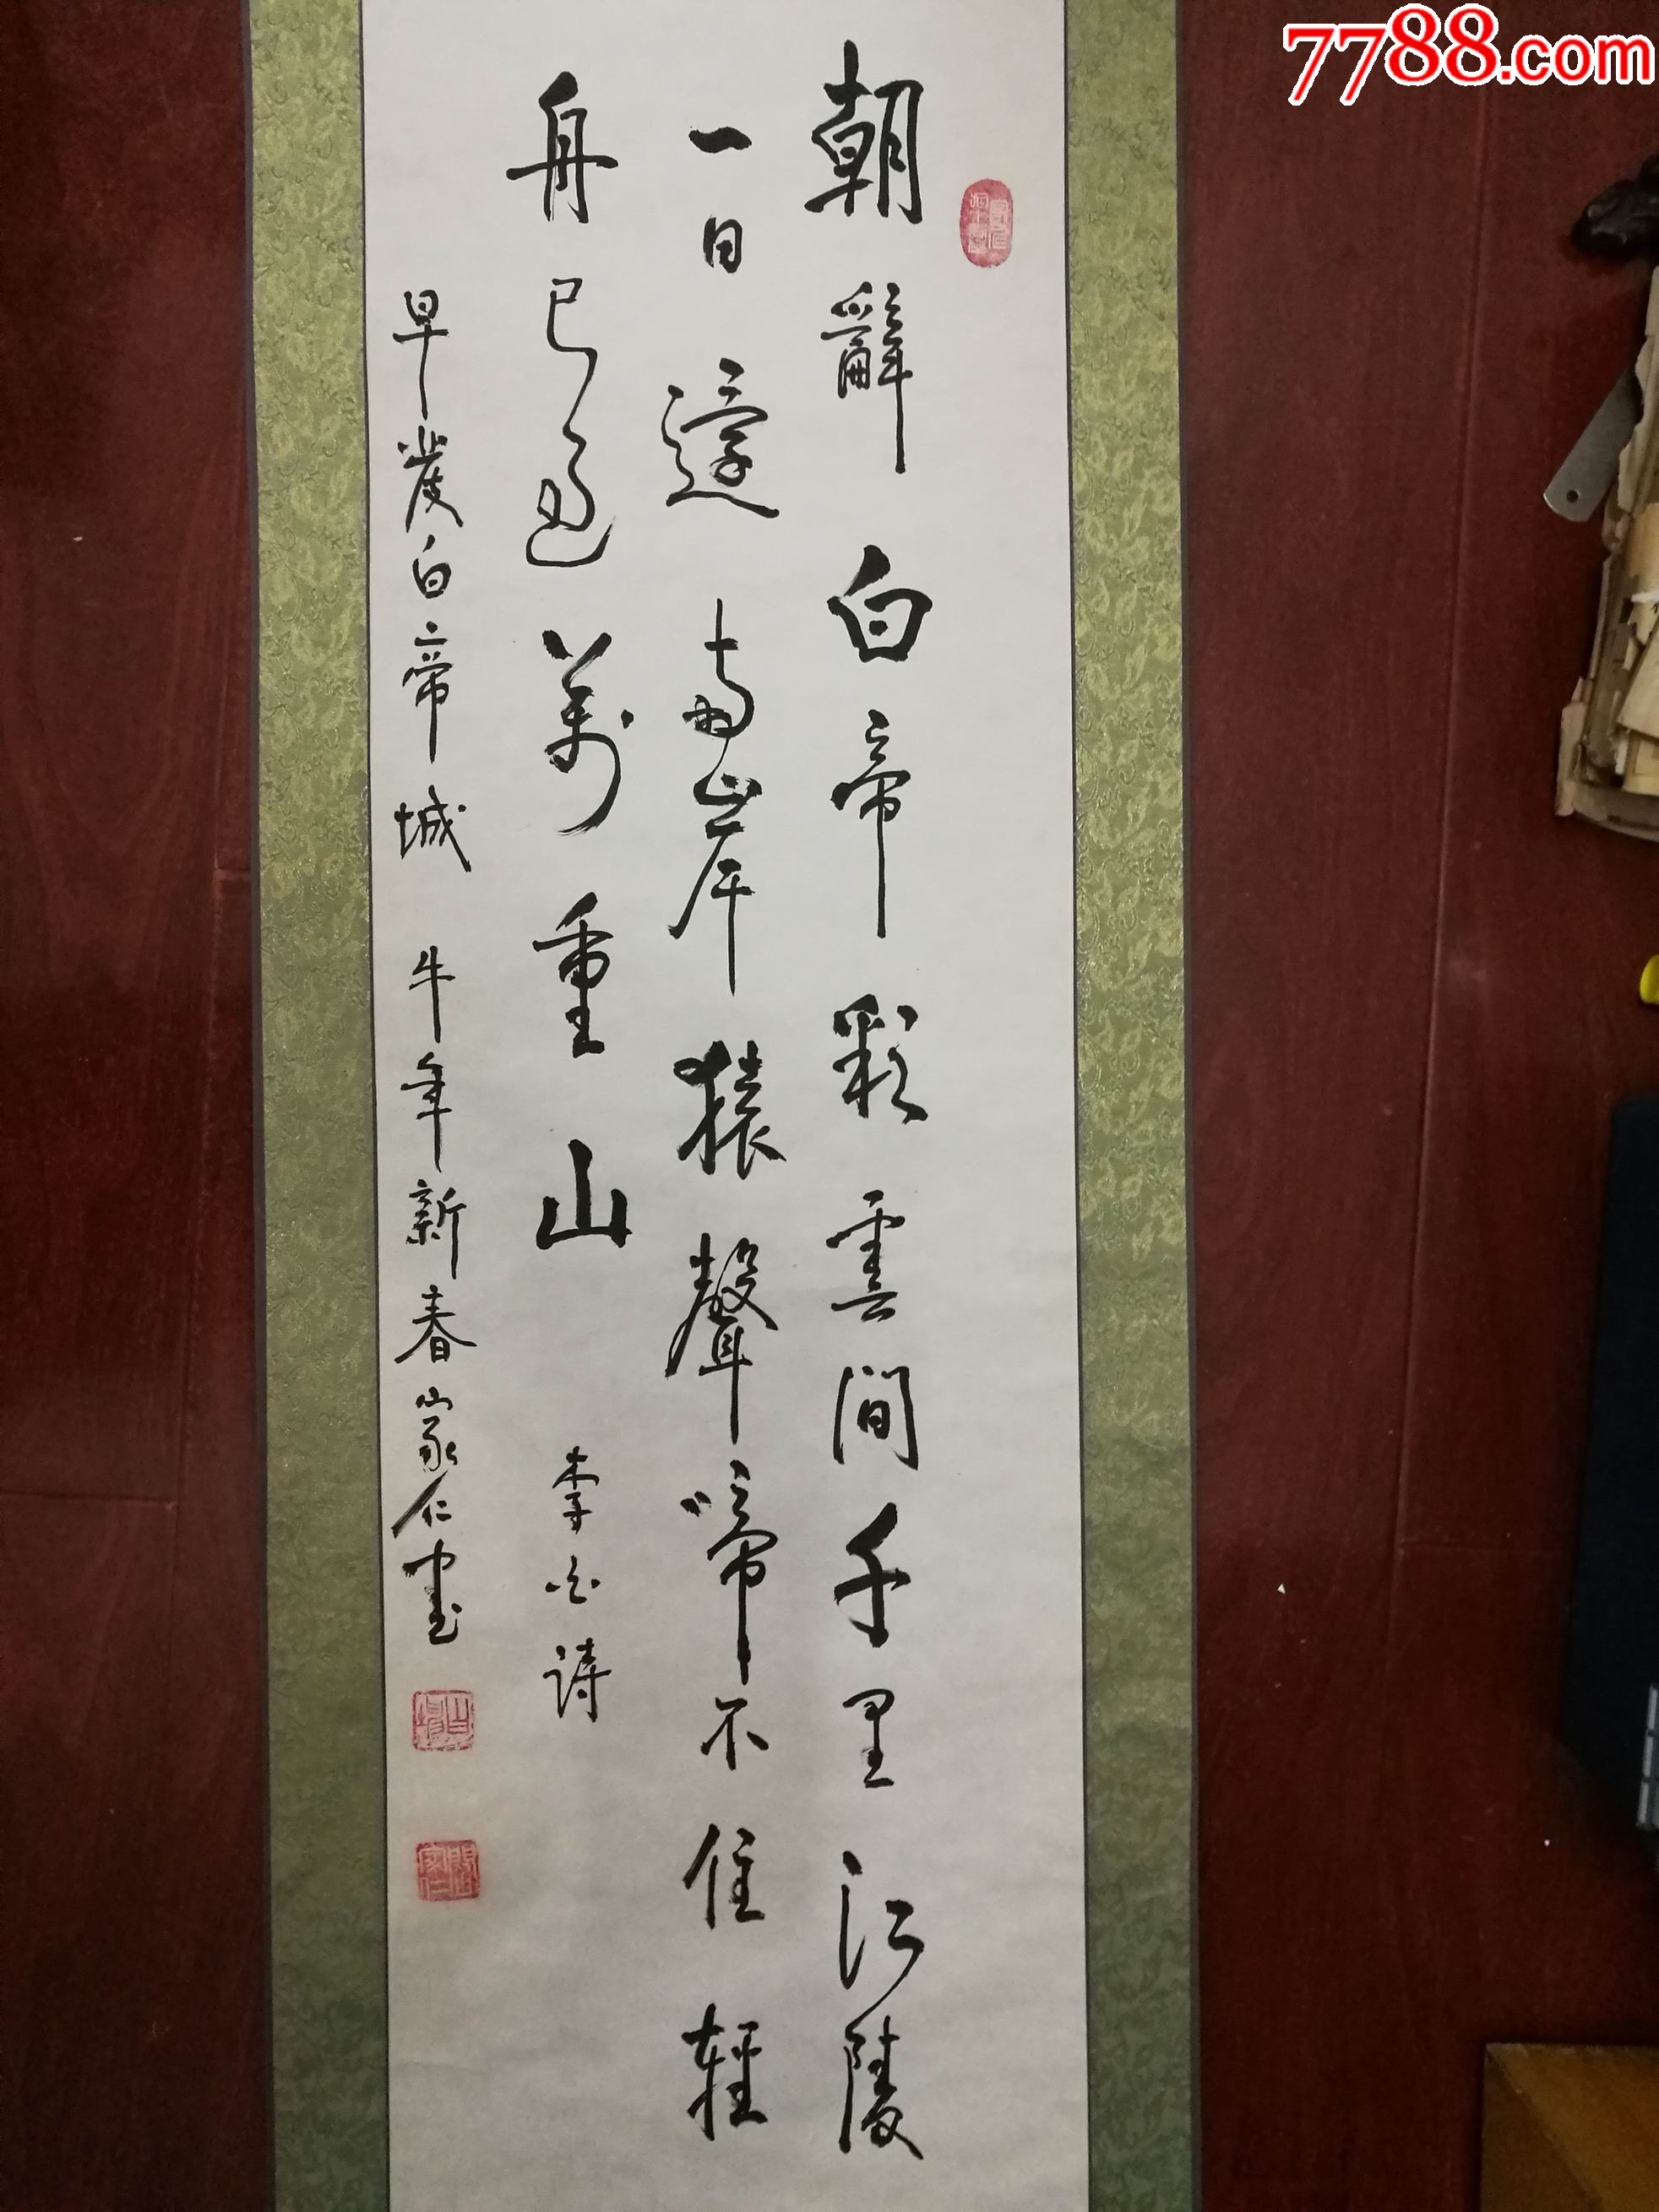 7788.com
朝辭白帝彩雲間千里江陵
一日還兩岸猿聲啼不住輕
舟已過萬重山
李白詩
早發白帝城 牛年新春家仁書